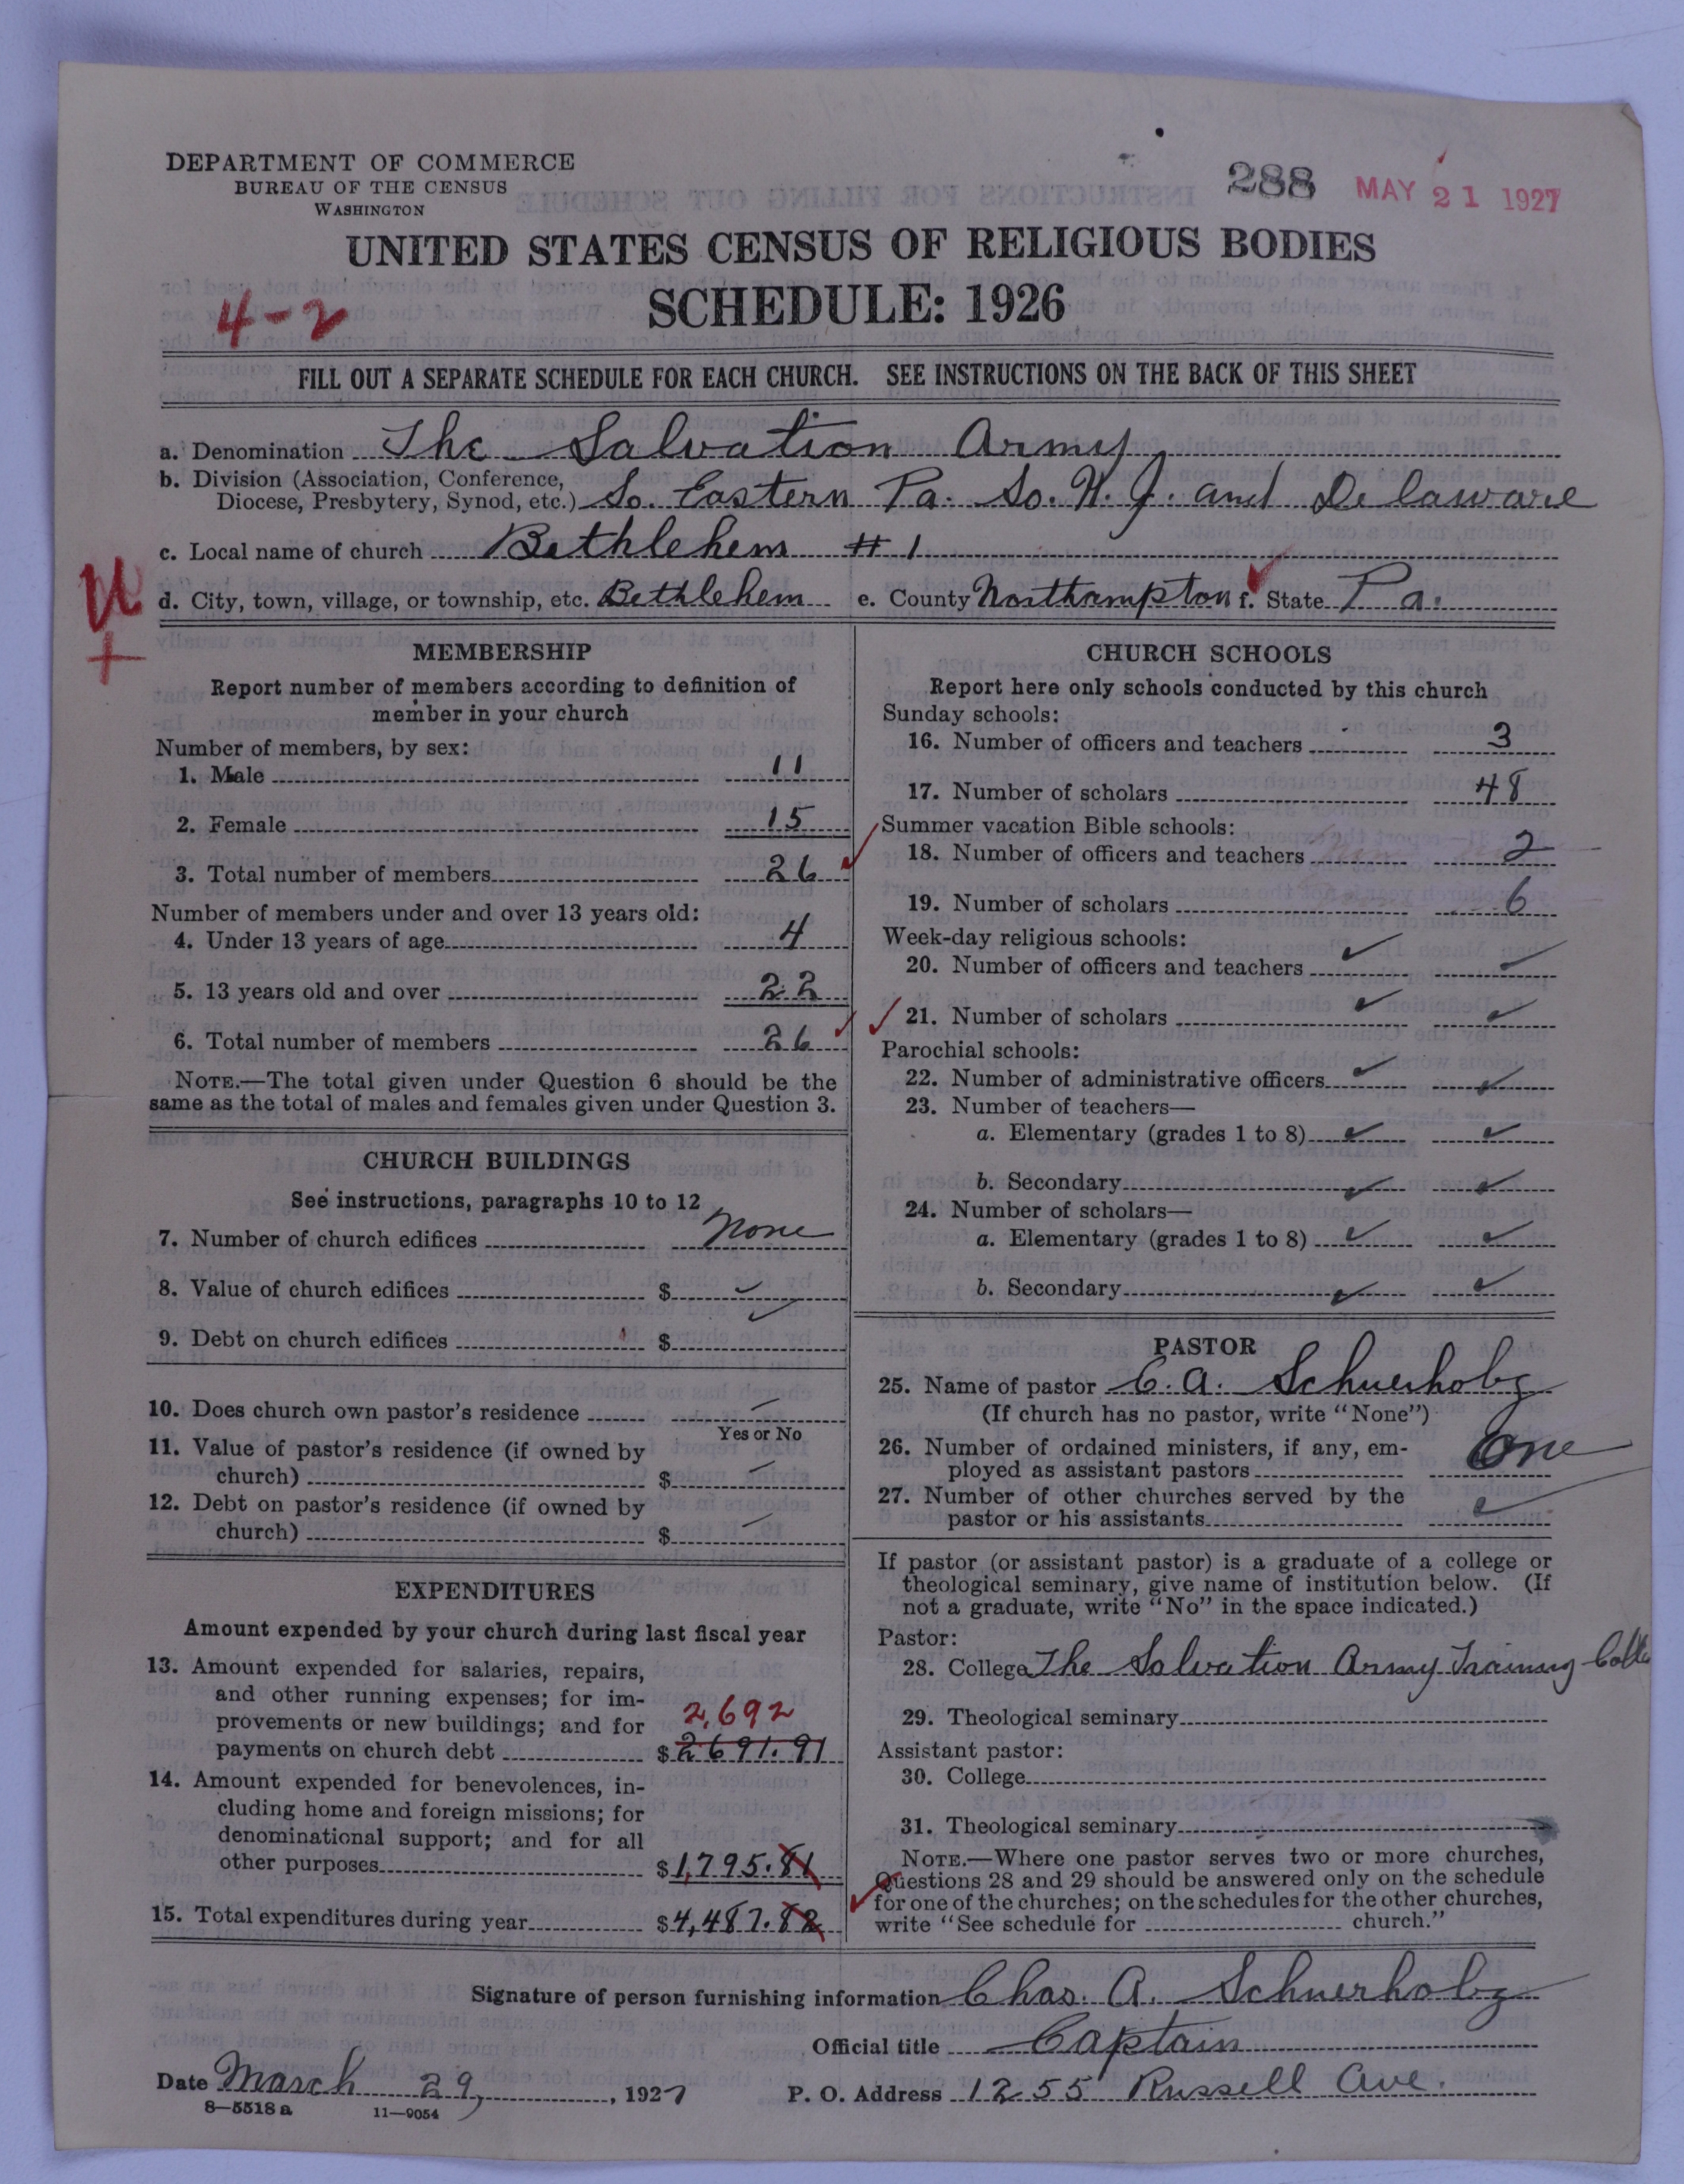 DEPARTMENT OF COMMERCE
BUREAU OF THE CENSUS
WASHINGTON
288 MAY 21 1927
UNITED STATES CENSUS OF RELIGIOUS BODIES
SCHEDULE: 1926
4-2
FILL OUT A SEPARATE SCHEDULE FOR EACH CHURCH. SEE INSTRUCTIONS ON THE BACK OF THIS SHEET
a. Denomination The Salvation Army
b. Division (Association, Conference,
Diocese, Presbytery, Synod, etc.) So. Eastern Pa. So. N. J. and Delaware
c. Local name of church Bethlehem #1
d. City, town, village, or township, etc. Bethlehem e. County Northampton f. State Pa.
MEMBERSHIP
Report number of members according to definition of
member in your church
Number of members, by sex:
1. Male 11
2. Female 15
3. Total number of members 26
Number of members under and over 13 years old:
4. Under 13 years of age 4
5. 13 years old and over 22
6. Total number of members 26
NOTE.—The total given under Question 6 should be the
same as the total of males and females given under Question 3.
CHURCH BUILDINGS
See instructions, paragraphs 10 to 12
7. Number of church edifices none
8. Value of church edifices $ ✓
9. Debt on church edifices $ ✓
10. Does church own pastor's residence
Yes or No
11. Value of pastor's residence (if owned by
church) $
12. Debt on pastor's residence (if owned by
church) $
EXPENDITURES
Amount expended by your church during last fiscal year
13. Amount expended for salaries, repairs,
and other running expenses; for im-
provements or new buildings; and for 2,692
payments on church debt $ 2691.91
14. Amount expended for benevolences, in-
cluding home and foreign missions; for
denominational support; and for all
other purposes $ 1,795.81
15. Total expenditures during year $ 4,487.82
CHURCH SCHOOLS
Report here only schools conducted by this church
Sunday schools:
16. Number of officers and teachers 3
17. Number of scholars 48
Summer vacation Bible schools:
18. Number of officers and teachers 2
19. Number of scholars 6
Week-day religious schools:
20. Number of officers and teachers ✓ ✓
21. Number of scholars ✓ ✓
Parochial schools:
22. Number of administrative officers ✓ ✓
23. Number of teachers—
a. Elementary (grades 1 to 8) ✓ ✓
b. Secondary ✓ ✓
24. Number of scholars—
a. Elementary (grades 1 to 8) ✓ ✓
b. Secondary ✓ ✓
PASTOR
25. Name of pastor C. A. Schuerholz
(If church has no pastor, write "None")
26. Number of ordained ministers, if any, em-
ployed as assistant pastors One
27. Number of other churches served by the
pastor or his assistants ✓
If pastor (or assistant pastor) is a graduate of a college or
theological seminary, give name of institution below. (If
not a graduate, write "No" in the space indicated.)
Pastor:
28. College The Salvation Army Training
29. Theological seminary
Assistant pastor:
30. College
31. Theological seminary
NOTE.—Where one pastor serves two or more churches,
Questions 28 and 29 should be answered only on the schedule
for one of the churches; on the schedules for the other churches,
write "See schedule for church."
Signature of person furnishing information Chas. A. Schuerholz
Official title Captain
Date March 29, 1927 P. O. Address 1255 Russell Ave.
8—5518a 11—9054